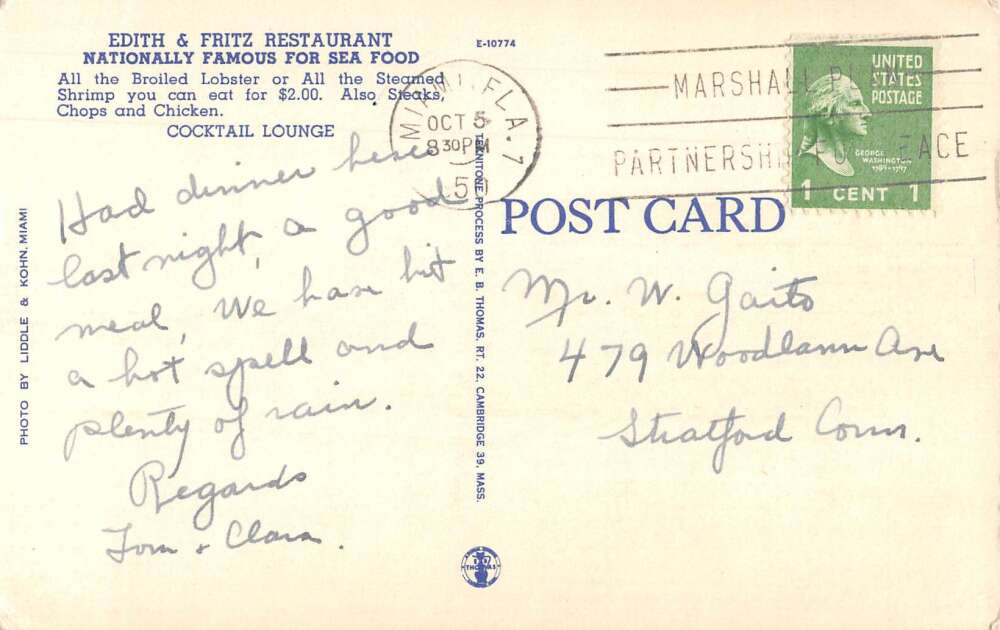 EDITH & FRITZ RESTAURANT
NATIONALLY FAMOUS FOR SEA FOOD
All the Broiled Lobster or All the Steamed
Shrimp you can eat for $2.00. Also Steaks,
Chops and Chicken.
COCKTAIL LOUNGE
Had dinner here
last night, a good
meal, We have hit
a hot spell and
plenty of rain.
Regards
Tom & Clara.
PHOTO BY LIDDLE & KOHN. MIAMI
E-10774
TEKNITONE PROCESS BY E. B. THOMAS, RT. 22, CAMBRIDGE 39, MASS.
THOMAS
MIAMI, FLA. 7
OCT 5
8 30 PM
50
MARSHALL PLAN
PARTNERSHIP FOR PEACE
UNITED
STATES
POSTAGE
GEORGE
WASHINGTON
1789-1797
1 CENT 1
POST CARD
Mr. W. Gaito
479 Woodlawn Ave
Stratford Conn.